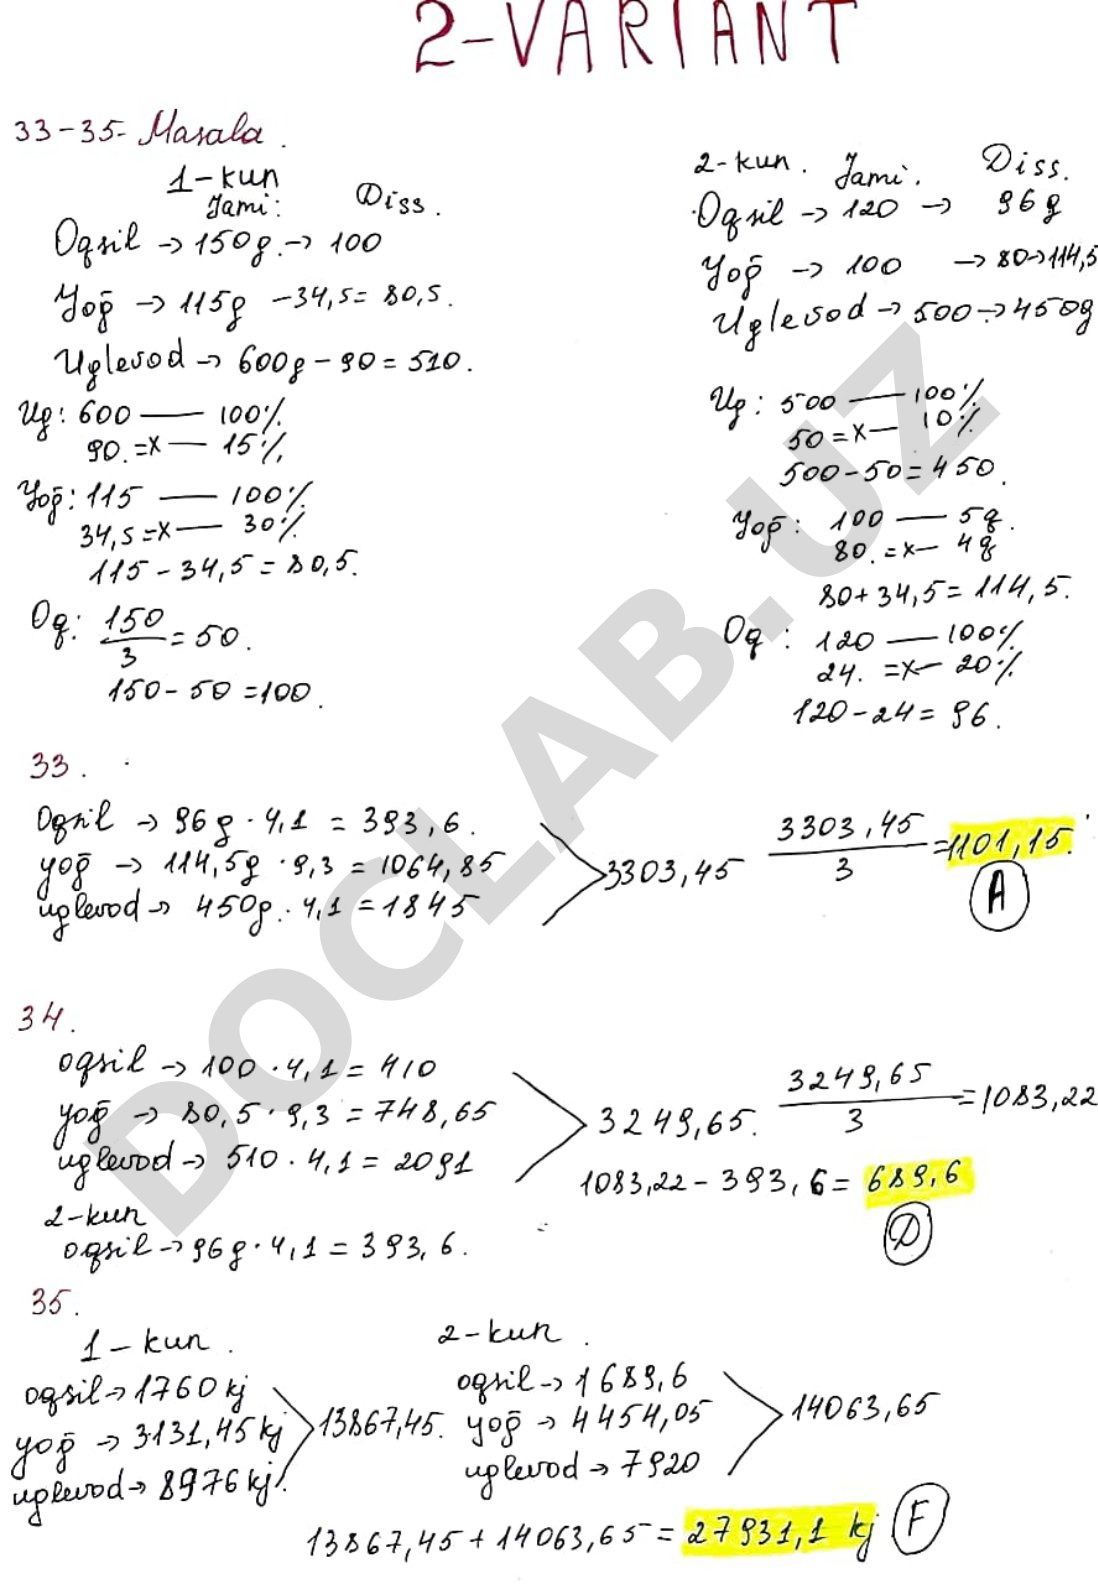 2-VARIANT
33-35- Masala.
1-kun
Jami: Diss.
Oqsil → 150g. → 100
Yog̅ → 115g - 34,5 = 80,5.
Uglevod → 600g - 90 = 510.
Ug: 600 — 100%
90. = x — 15%
Yog̅: 115 — 100%
34,5 = x — 30%
115 - 34,5 = 80,5.
Oq: 150/3 = 50.
150 - 50 = 100.
2-kun. Jami. Diss.
Oqsil → 120 → 96g
Yog̅ → 100 → 80 → 114,5
Uglevod → 500 → 450g
Ug: 500 — 100%
50 = x — 10%
500 - 50 = 450.
Yog̅: 100 — 5g.
80. = x — 4g
80 + 34,5 = 114,5.
Oq: 120 — 100%
24. = x — 20%
120 - 24 = 96.
33.
Oqsil → 96g · 4,1 = 393,6.
yog̅ → 114,5g · 9,3 = 1064,85
uglevod → 450g. · 4,1 = 1845
3303,45
3303,45/3 = 1101,15.
A
34.
oqsil → 100 · 4,1 = 410
yog̅ → 80,5 · 9,3 = 748,65
uglevod → 510 · 4,1 = 2091
3249,65.
3249,65/3 = 1083,22
1083,22 - 393,6 = 689,6
D
2-kun
oqsil → 96g · 4,1 = 393,6.
35.
1-kun.
oqsil → 1760 kj
yog̅ → 3131,45 kj
uglevod → 8976 kj.
13867,45.
2-kun.
oqsil → 1689,6
yog̅ → 4454,05
uglevod → 7920
14063,65
13867,45 + 14063,65 = 27931,1 kj
F
DOCLAB.UZ